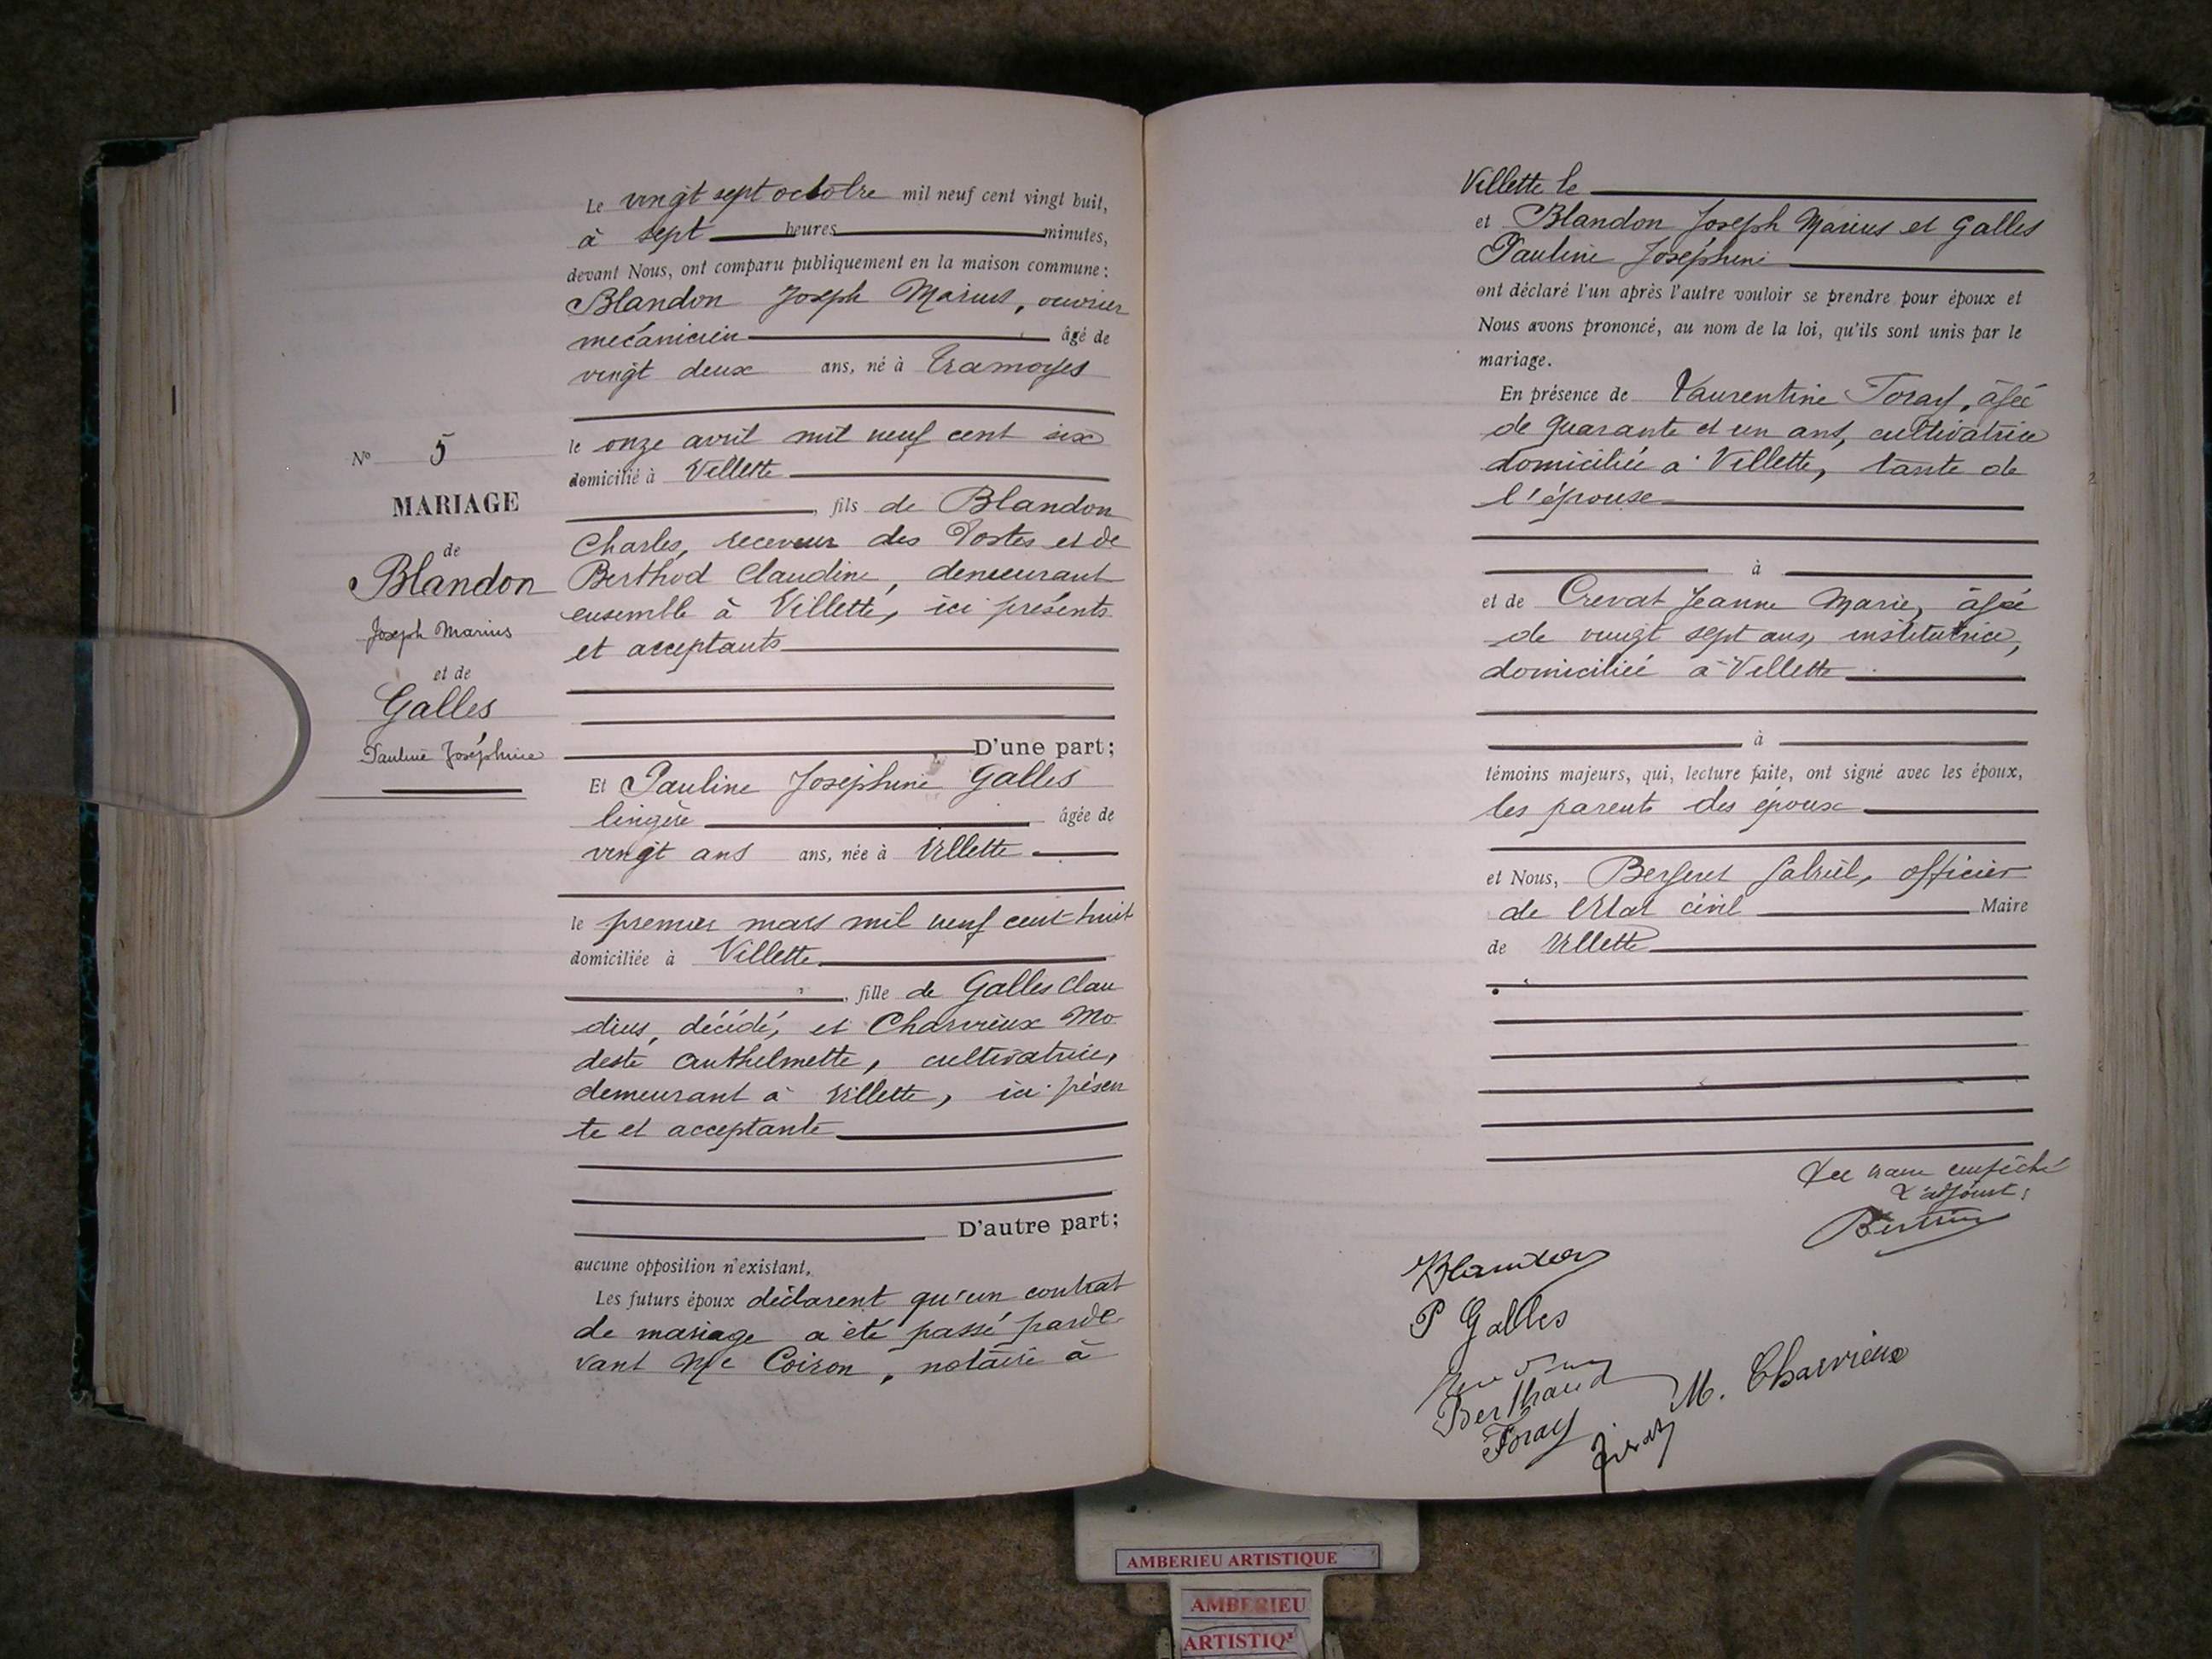 Le vingt sept octobre mil neuf cent vingt huit,
à sept heures minutes,
devant Nous, ont comparu publiquement en la maison commune :
Blandon Joseph Marius, ouvrier
mécanicien âgé de
vingt deux ans, né à Tramoyes
le onze avril mil neuf cent six
domicilié à Villette
, fils de Blandon
Charles, receveur des Postes et de
Berthod Claudine, demeurant
ensemble à Villette, ici présents
et acceptants
D'une part ;
Et Pauline Joséphine Galles
lingère âgée de
vingt ans ans, née à Villette
le premier mars mil neuf cent huit
domiciliée à Villette
, fille de Galles Clau
dius, décédé, et Charvieux Mo
deste Anthelmette, cultivatrice,
demeurant à Villette, ici présen
te et acceptante
D'autre part ;
aucune opposition n'existant,
Les futurs époux déclarent qu'un contrat
de mariage a été passé parde
vant Me Coiron, notaire à
N° 5
MARIAGE
de
Blandon
Joseph Marius
et de
Galles
Pauline Joséphine
Villette le
et Blandon Joseph Marius et Galles
Pauline Joséphine
ont déclaré l'un après l'autre vouloir se prendre pour époux et
Nous avons prononcé, au nom de la loi, qu'ils sont unis par le
mariage.
En présence de Laurentine Foray, âgée
de quarante et un ans, cultivatrice
domiciliée à Villette, tante de
l'épouse
à
et de Crevat Jeanne Marie, âgée
de vingt sept ans, institutrice,
domiciliée à Villette
à
témoins majeurs, qui, lecture faite, ont signé avec les époux,
les parents des époux
et Nous, Gabriel, officier
de l'Etat civil Maire
de Villette
empêché
L'adjoint :
Blandon
P Galles
Berthaud
M. Charvieux
Foray
AMBERIEU ARTISTIQUE
AMBERIEU
ARTISTIQ